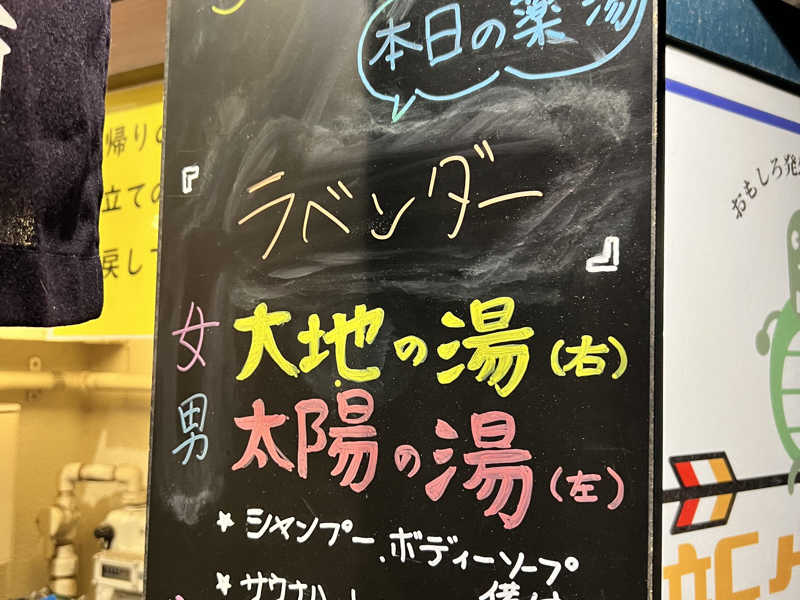 本日の薬湯
『ラベンダー』
女 大地の湯(右)
男 太陽の湯(左)
★シャンプー、ボディーソープ
★サウナハ
帰りの
立ての
戻して
おもしろ発